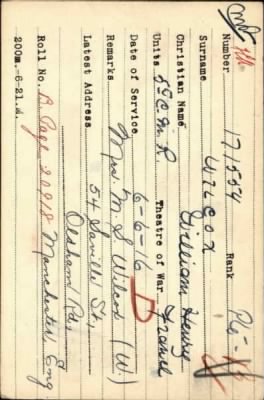 Number 171554 Rank Pte
Surname WILCOX
Christian Name William Henry
Units 5th C.M.R. Theatre of War France
Date of Service 6-6-16 D
Remarks Mrs. M. S. Wilcox (W)
Latest Address 54 Saville St.,
Oldham Rd.,
Manchester Eng
Roll No. B. Page 20918
200m.-6-21.